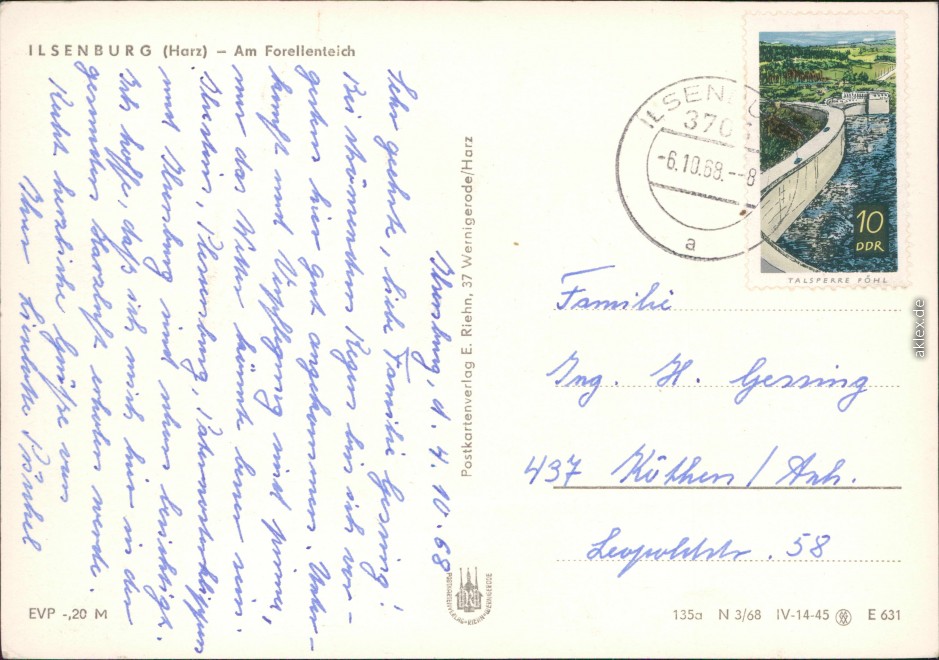 ILSENBURG (Harz) – Am Forellenteich
Ilsenburg, d. 4. 10. 68
Sehr geehrte, liebe Familie Gessing!
Bei strömenden Regen bin ich vor-
gestern hier gut angekommen. Unter-
kunft und Verpflegung sind prima,
nur das Wetter könnte besser sein.
Ilsestein, Plessenburg, Paternosterklippen
und Ilsenburg sind schon besichtigt.
Ich hoffe, daß ich mich hier in der
gesunden Harzluft erholen werde.
Recht herzliche Grüße von
Ihrer Lieselotte
Postkartenverlag E. Riehn, 37 Wernigerode/Harz
POSTKARTENVERLAG • RIEHN • WERNIGERODE
ILSENBU
3705
-6.10.68.--8
a
10
DDR
TALSPERRE PÖHL
Familie
Ing. H. Gessing
437 Köthen / Anh.
Leopoldstr. 58
EVP -,20 M
135a N 3/68 IV-14-45 E 631
aklex.de